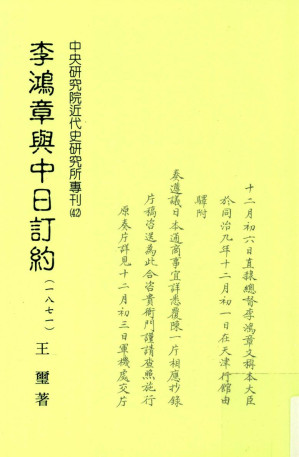 十二月初六日直隸總督李鴻章文稱本大臣
於同治九年十二月初一日在天津行館由
驛附
奏遵議日本通商事宜詳悉覆陳一片相應抄錄
片稿咨送為此合咨貴衙門謹請查照施行
原奏片詳見十二月初三日軍機處交片
中央研究院近代史研究所專刊(42)
李鴻章與中日訂約(一八七一)
王璽著